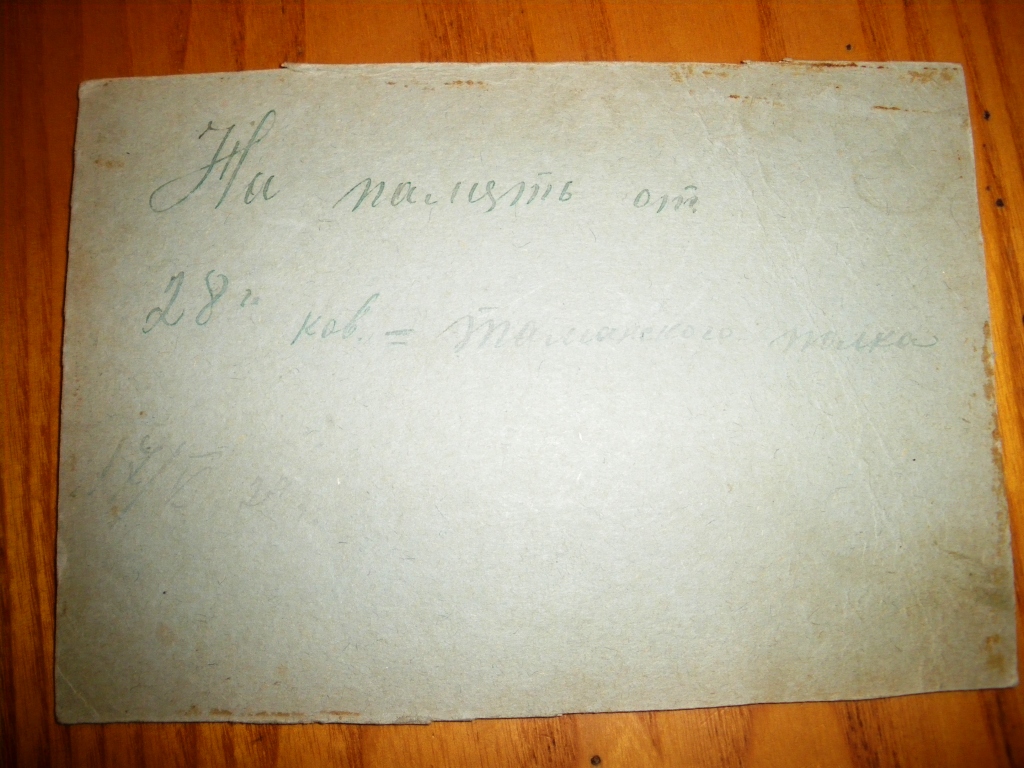 На память от
28 го кав. = Таманского полка